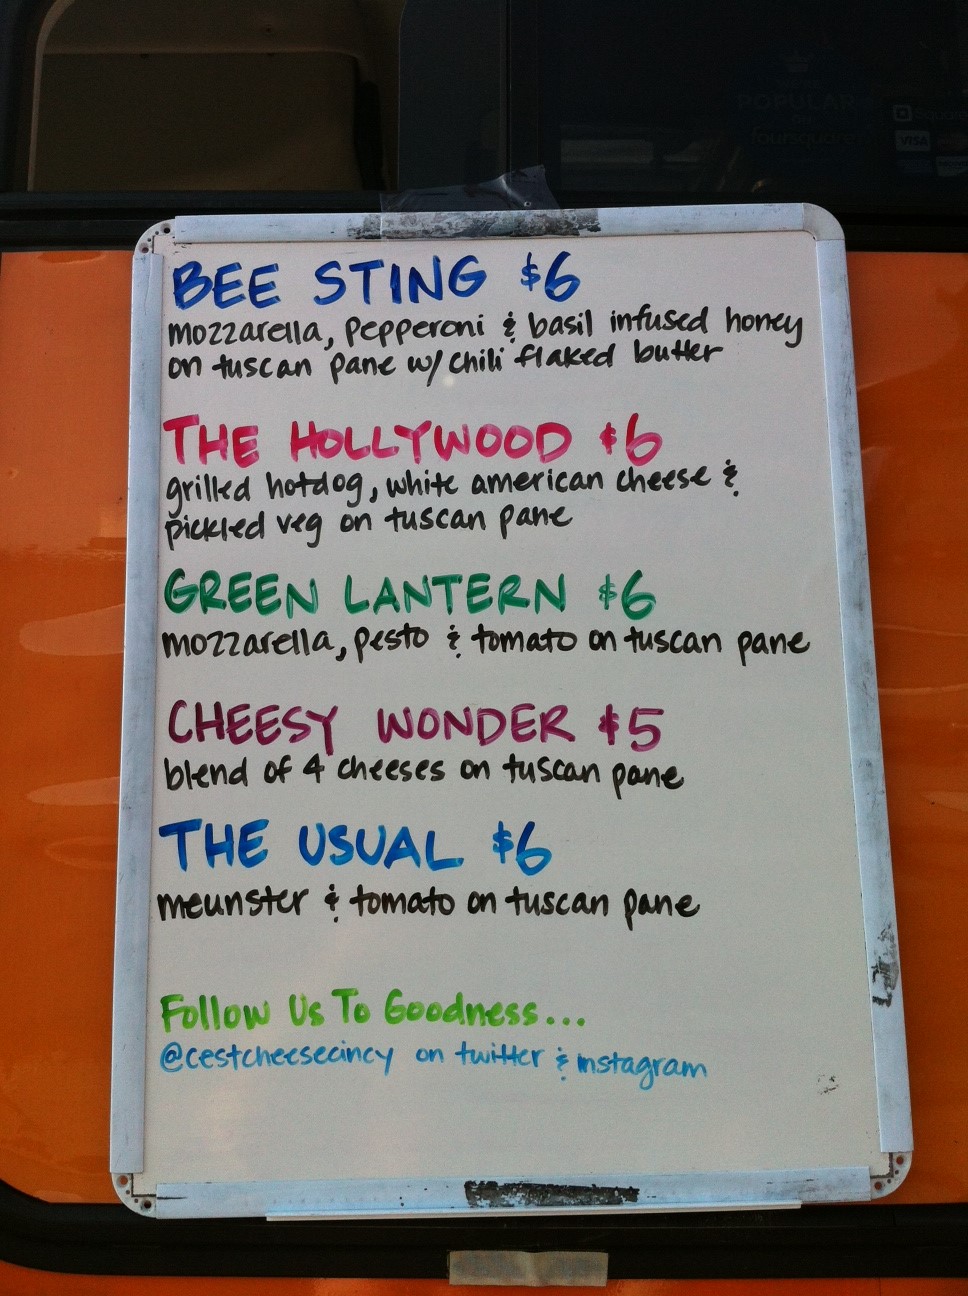 POPULAR
foursquare
VISA
BEE STING $6
mozzarella, pepperoni & basil infused honey
on tuscan pane w/ chili flaked butter
THE HOLLYWOOD $6
grilled hotdog, white american cheese &
pickled veg on tuscan pane
GREEN LANTERN $6
mozzarella, pesto & tomato on tuscan pane
CHEESY WONDER $5
blend of 4 cheeses on tuscan pane
THE USUAL $6
meunster & tomato on tuscan pane
Follow Us To Goodness...
@cestcheesecincy on twitter & instagram